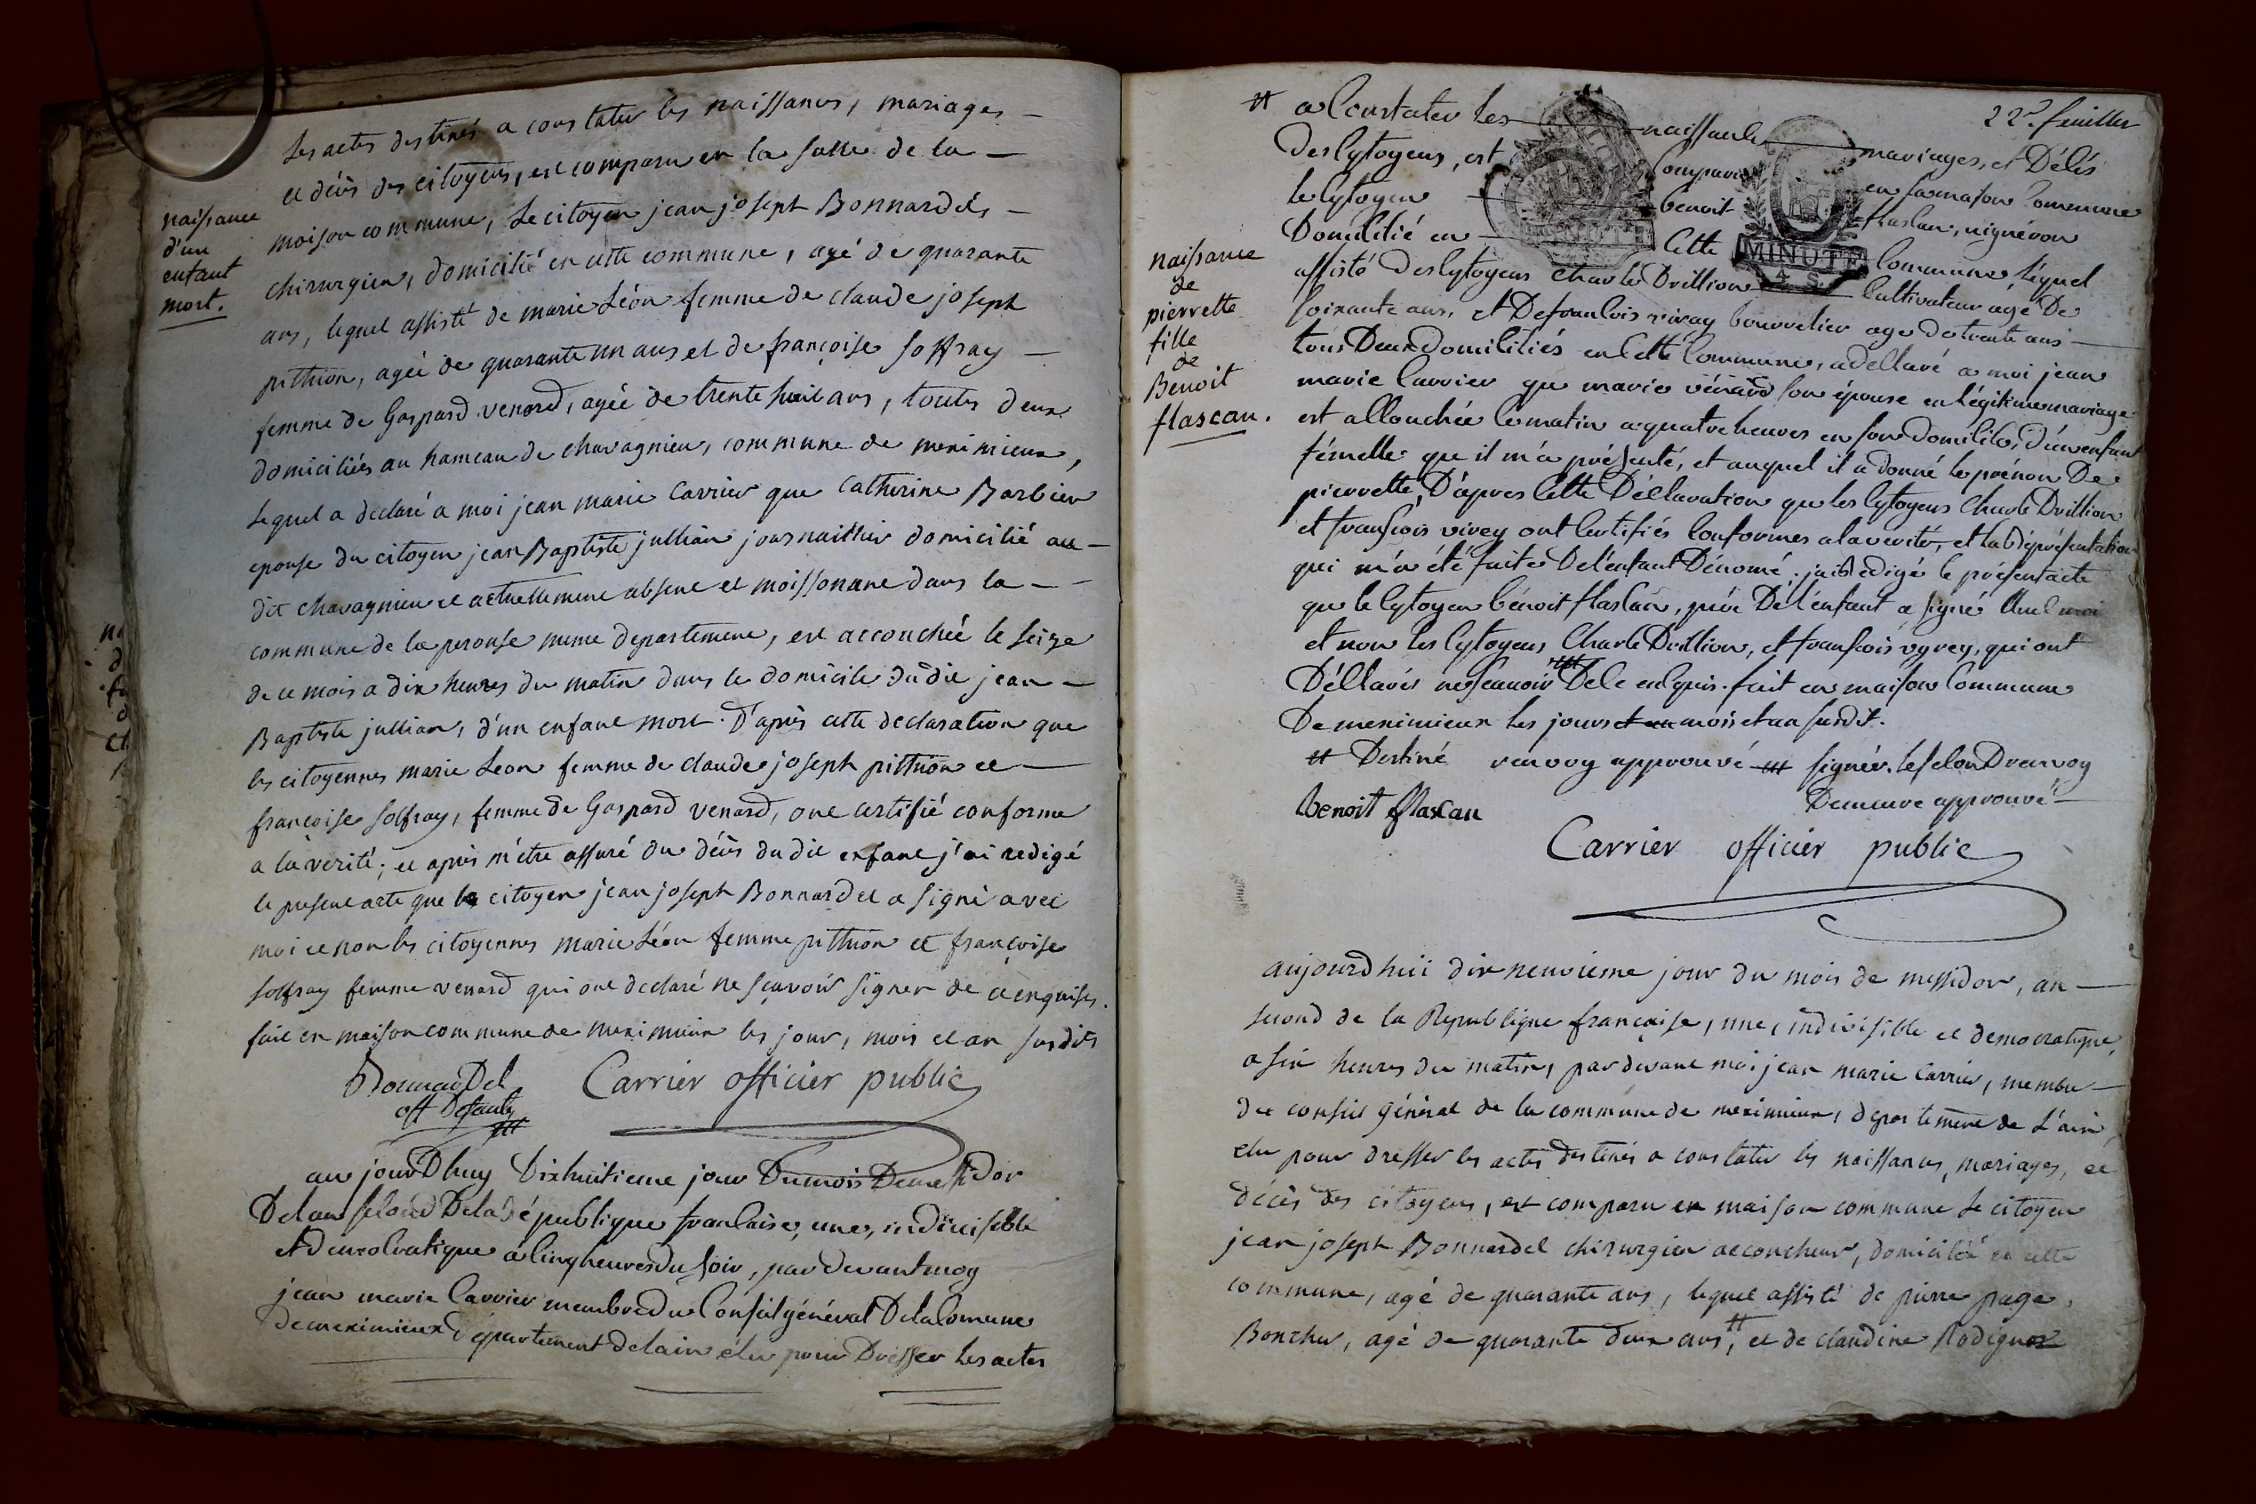 les actes destinés a constater les naissances, mariages
et décès des citoyens, est comparu en la salle de la
maison commune, le citoyen jean joseph Bonnardel
chirurgien, domicilié en cette commune, agé de quarante
ans, lequel assisté de marie Léon femme de claude joseph
pithion, agée de quarante un ans et de françoise soffray
femme de Gaspard venard, agée de trente huit ans, toutes deux
domiciliées au hameau de chavagnieu, commune de meximieux,
lequel a declaré a moi jean marie Carrier que Catherine Barbier
epouse du citoyen jean Baptiste jullian journaillier domicilié au
dit chavagnieu et actuellement absent et moissonant dans la
commune de la perouse meme departement, est accouchée le seize
de ce mois a dix heures du matin dans le domicile du dit jean
Baptiste jullian, d'un enfant mort. D'après cette declaration que
les citoyennes marie Leon femme de claude joseph pithion et
françoise solfray, femme de Gaspard venard, ont certifié conforme
a la verité; et après m'être assuré du décès du dit enfant j'ai redigé
le present acte que le citoyen jean joseph Bonnardel a signé avec
moi et non les citoyennes marie Léon femme pithion et françoise
solfray femme venard qui ont declaré ne sçavoir signer de ce enquises.
fait en maison commune de meximieux les jour, mois et an susdits
naissance
d'un
enfant
mort.
BonnarDel
off De santé
Carrier officier public
au jourDhuy Dixhuitieme jour Du mois De messidor
De lan second De la république francaise, une, indivisible
et democratique a cinq heures du soir, par devant moy
jean marie Carrier membre du Conseil général De la Comune
de meximieux département de lain elu pour Dresser les actes
22e. feuillet
# a Constater les naissances mariages, et Décés
Des Cytoyens, est Comparu en la maison Commune
le Cytoyen benoit flascan, vignéron
Domicilié en Cette Commune léquel
assisté des Cytoyens Charle Drillion Cultivateur agé De
soixante ans, et De francois virey bourrelier age de trente ans
tous Deux domiciliés en Cette Commune, a déclaré a moi jean
marie Carrier que marie vénard son épouse en légitime mariage
est accouchée ce matin a quatre heures en son domicile, d'un enfant
fémelle que il m'a présenté, et auquel il a donné le prénom De
pierrette, D'après Cette Déclaration que les Cytoyens Charle Drillion
et francois virey ont certifiés conformes a la verité, et la représentation
qui m'a été faite De l'enfant Dénomé, j'ai rédigé le présent acte
que le Cytoyen bénoit flascan, père De l'enfant a signé Avec moi
et non les Cytoyens Charle Drillion, et francois vyrey, qui ont
Déclarés ne scavoir De ce enquis. fait en maison Commune
De meximieux les jours et an mois et an susdit.
# Destiné renvoy approuvé signér. le second renvoy
Demeure approuvé
naissance
de
pierrette
fille
de
Benoit
flascan.
MINUTE
4 S.
benoit flascan
Carrier officier public
aujourd'huii dix neuvieme jour du mois de messidor, an
second de la Republique française, une, indivisible et democratique,
a six heures du matin, par devant moi jean marie Carrier, membre
du conseil général de la commune de meximieux, departement de L'ain,
elu pour dresser les actes destinés a constater les naissances, mariages, et
décès des citoyens, est comparu en maison commune le citoyen
jean joseph Bonnardel chirurgien accoucheur, domicilié en cette
commune, agé de quarante ans, lequel assisté de pierre page
Boucher, agé de quarante deux ans, # et de claudine Rodiguet